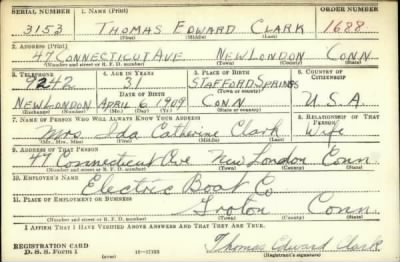 SERIAL NUMBER 1. NAME (Print) ORDER NUMBER
3153 THOMAS EDWARD CLARK 1688
(First) (Middle) (Last)
2. ADDRESS (Print)
47 CONNECTICUT AVE NEW LONDON CONN
(Number and street or R. F. D. number) (Town) (County) (State)
3. TELEPHONE 4. AGE IN YEARS 5. PLACE OF BIRTH 6. COUNTRY OF CITIZENSHIP
9242 STAFFORD SPRINGS
DATE OF BIRTH (Town or county)
NEW LONDON APRIL 6 1909 CONN U.S.A.
(Exchange) (Number) (Mo.) (Day) (Yr.) (State or country)
7. NAME OF PERSON WHO WILL ALWAYS KNOW YOUR ADDRESS 8. RELATIONSHIP OF THAT PERSON
Mrs. Ida Catherine Clark Wife
(Mr., Mrs., Miss) (First) (Middle) (Last)
9. ADDRESS OF THAT PERSON
47 Connecticut Ave New London Conn.
(Number and street or R. F. D. number) (Town) (County) (State)
10. EMPLOYER'S NAME
Electric Boat Co
11. PLACE OF EMPLOYMENT OR BUSINESS
Groton Conn.
(Number and street or R. F. D. number) (Town) (County) (State)
I AFFIRM THAT I HAVE VERIFIED ABOVE ANSWERS AND THAT THEY ARE TRUE.
REGISTRATION CARD
D. S. S. Form 1 (over) 16—17105 Thomas Edward Clark
(Registrant's signature)